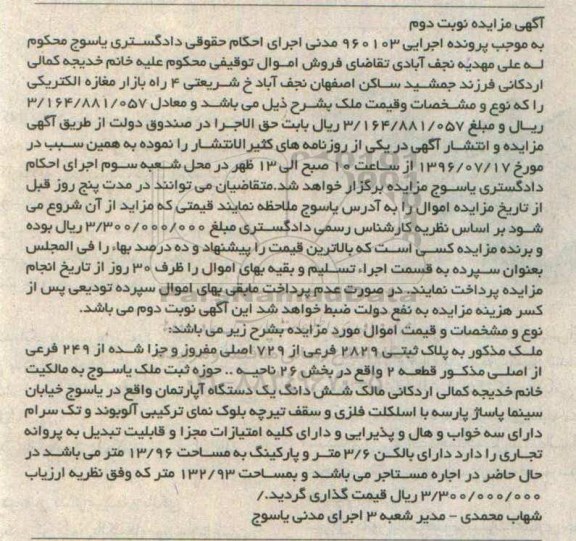 آگهی مزایده نوبت دوم
به موجب پرونده اجرایی ۹۶۰۱۰۳ مدنی اجرای احکام حقوقی دادگستری یاسوج محکوم
له علی مهدیه نجف آبادی تقاضای فروش اموال توقیفی محکوم علیه خانم خدیجه کمالی
اردکانی فرزند جمشید ساکن اصفهان نجف آباد خ شریعتی ۴ راه بازار مغازه الکتریکی
را که نوع و مشخصات وقیمت ملک بشرح ذیل می باشد و معادل ۳/۱۶۴/۸۸۱/۰۵۷
ریال و مبلغ ۳/۱۶۴/۸۸۱/۰۵۷ ریال بابت حق الاجرا در صندوق دولت از طریق آگهی
مزایده و انتشار آگهی در یکی از روزنامه های کثیرالانتشار را نموده به همین سبب در
مورخ ۱۳۹۶/۰۷/۱۷ از ساعت ۱۰ صبح الی ۱۳ ظهر در محل شعبه سوم اجرای احکام
دادگستری یاسوج مزایده برگزار خواهد شد.متقاضیان می توانند در مدت پنج روز قبل
از تاریخ مزایده اموال را به آدرس یاسوج ملاحظه نمایند قیمتی که مزاید از آن شروع می
شود بر اساس نظریه کارشناس رسمی دادگستری مبلغ ۳/۳۰۰/۰۰۰/۰۰۰ ریال بوده
و برنده مزایده کسی است که بالاترین قیمت را پیشنهاد و ده درصد بهاء را فی المجلس
بعنوان سپرده به قسمت اجراء تسلیم و بقیه بهای اموال را ظرف ۳۰ روز از تاریخ انجام
مزایده پرداخت نمایند. در صورت عدم پرداخت مابقی بهای اموال سپرده تودیعی پس از
کسر هزینه مزایده به نفع دولت ضبط خواهد شد این آگهی نوبت دوم می باشد.
نوع و مشخصات و قیمت اموال مورد مزایده بشرح زیر می باشد:
ملک مذکور به پلاک ثبتی ۲۸۲۹ فرعی از ۷۲۹ اصلی مفروز و جزا شده از ۲۴۹ فرعی
از اصلی مذکور قطعه ۲ واقع در بخش ۲۶ ناحیه .. حوزه ثبت ملک یاسوج به مالکیت
خانم خدیجه کمالی اردکانی مالک شش دانگ یک دستگاه آپارتمان واقع در یاسوج خیابان
سینما پاساژ پارسه با اسلکلت فلزی و سقف تیرچه بلوک نمای ترکیبی آلوبوند و تک سرام
دارای سه خواب و هال و پذیرایی و دارای کلیه امتیازات مجزا و قابلیت تبدیل به پروانه
تجاری را دارد دارای بالکن ۳/۶ متر و پارکینگ به مساحت ۱۳/۹۶ متر می باشد در
حال حاضر در اجاره مستاجر می باشد و بمساحت ۱۳۲/۹۳ متر که وفق نظریه ارزیاب
۳/۳۰۰/۰۰۰/۰۰۰ ریال قیمت گذاری گردید./
شهاب محمدی - مدیر شعبه ۳ اجرای مدنی یاسوج